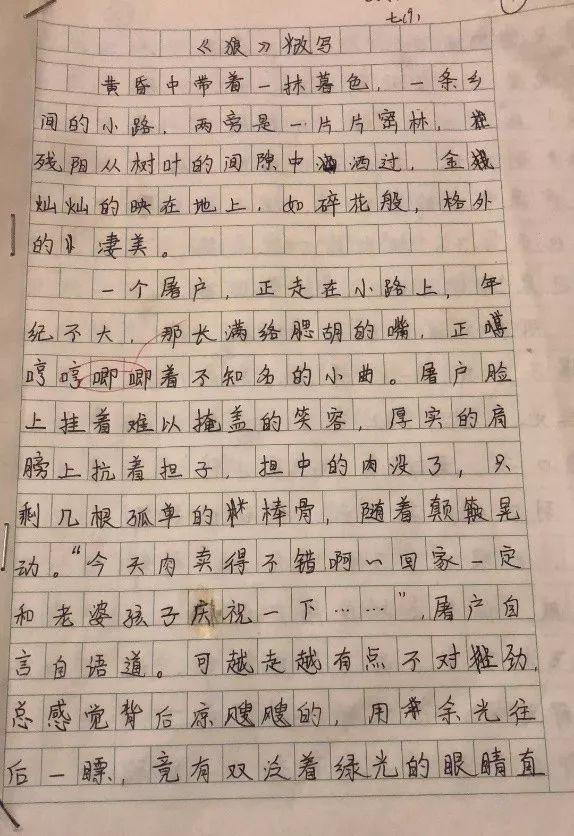 七(9)
《狼》改写
黄昏中带着一抹暮色，一条乡
间的小路，两旁是一片片密林，
残阳从树叶的间隙中洒过，金
灿灿的映在地上，如碎花般，格外
的凄美。
一个屠户，正走在小路上，年
纪不大，那长满络腮胡的嘴，正
哼哼唧唧着不知名的小曲。屠户脸
上挂着难以掩盖的笑容，厚实的肩
膀上抗着担子，担中的肉没了，只
剩几根孤单的棒骨，随着颠簸晃
动。“今天肉卖得不错啊～回家一定
和老婆孩子庆祝一下……”，屠户自
言自语道。可越走越有点不对劲，
总感觉背后凉飕飕的，用余光往
后一瞟，竟有双泛着绿光的眼睛直